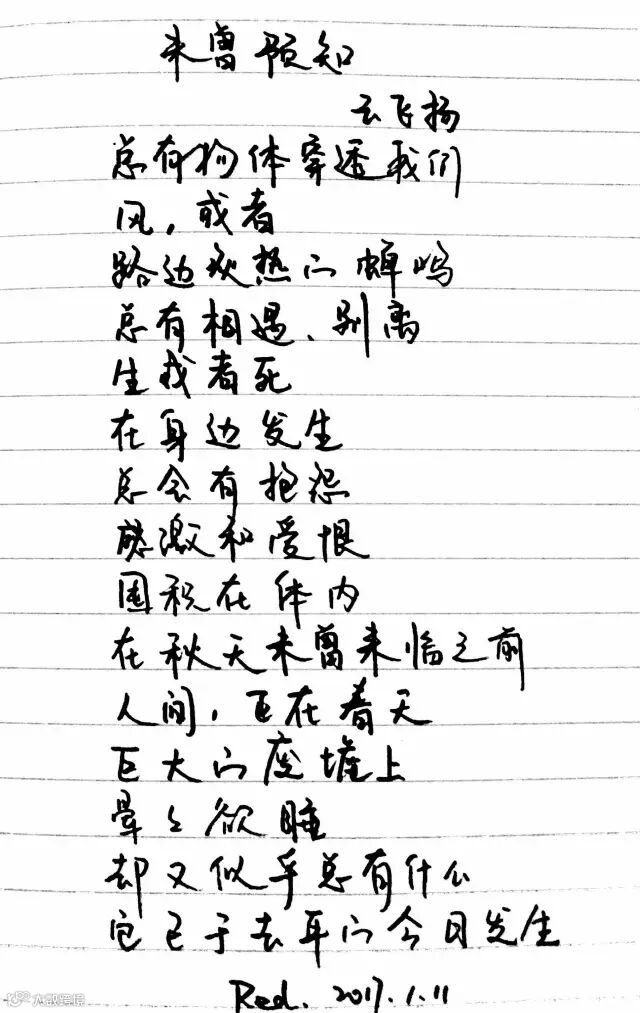 未曾预知
云飞扬
总有物体穿透我们
风,或者
路边炎热的蝉鸣
总有相遇、别离
生或者死
在身边发生
总会有抱怨
感激和爱恨
囤积在体内
在秋天未曾来临之前
人间,正在春天
巨大的废墟上
晕晕欲睡
却又似乎总有什么
它已于去年的今日发生
Red. 2017.1.11
大数跨境